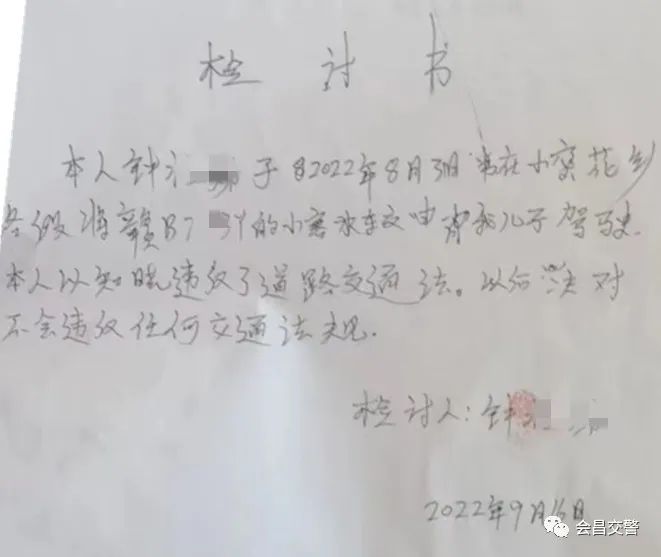 检讨书
本人钟 于2022年8月 日 在小 花乡
将赣B7 Y的小客 车交由 我儿子驾驶
本人以知晓违反了道路交通法。以后决对
不会违反任何交通法规.
检讨人:钟
2022年9月16日
会昌交警